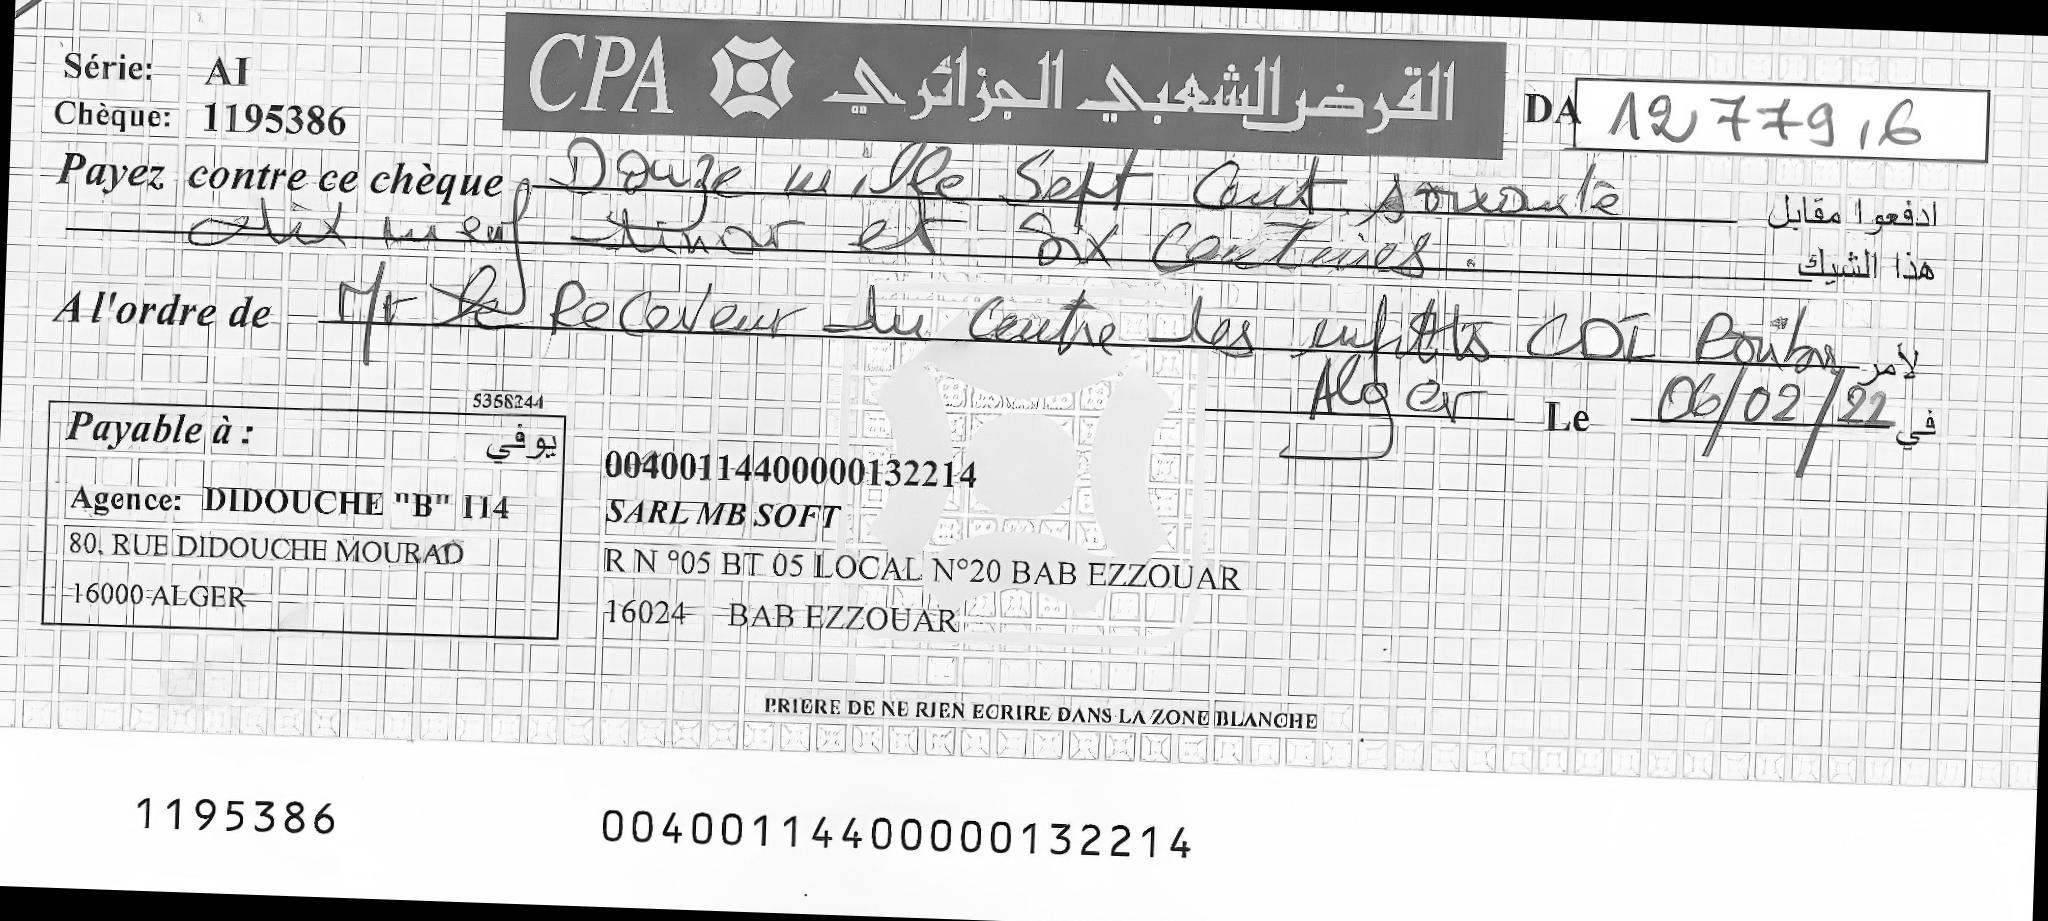 CPA القرض الشعبي الجزائري
Série: AI
Chèque: 1195386
DA 12 779,6
Payez contre ce chèque Douze mille Sept Cent soixante ادفعوا مقابل
dix neuf dinar et six Centimes. هذا الشيك
A l'ordre de Mr le Receveur du Centre des impôts CDI لأمر
Alger Le 06/02/22 في
5358244
Payable à : يوفي
Agence: DIDOUCHE "B" 114
80, RUE DIDOUCHE MOURAD
16000 ALGER
00400114400000132214
SARL MB SOFT
R N °05 BT 05 LOCAL N°20 BAB EZZOUAR
16024 BAB EZZOUAR
PRIERE DE NE RIEN ECRIRE DANS LA ZONE BLANCHE
1195386 00400114400000132214